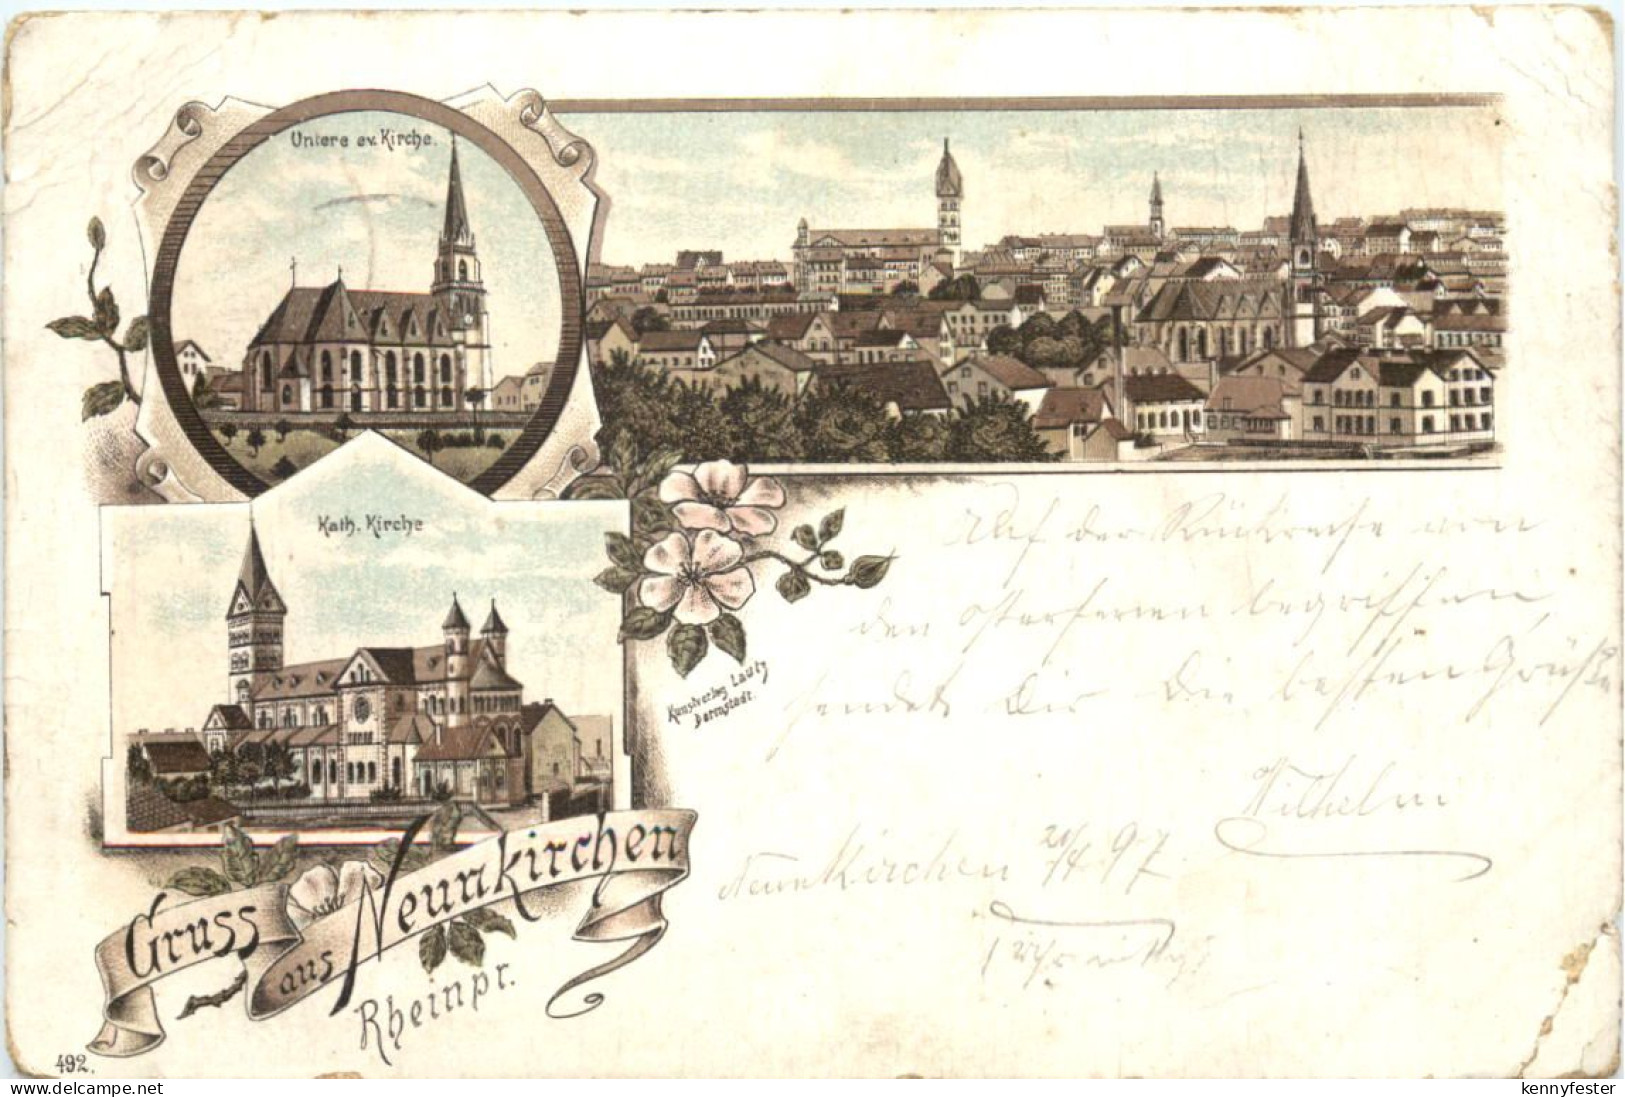 Untere ev. Kirche.
Kath. Kirche
Kunstverlag Lautz
Darmstadt.
Gruss
aus Neunkirchen
Rheinpr.
492.
Auf der Rückreise von
den Osterferien begriffen,
sendet Dir die besten Grüße
Wilhelm
Neunkirchen 20/4 97
www.delcampe.net
kennyfester